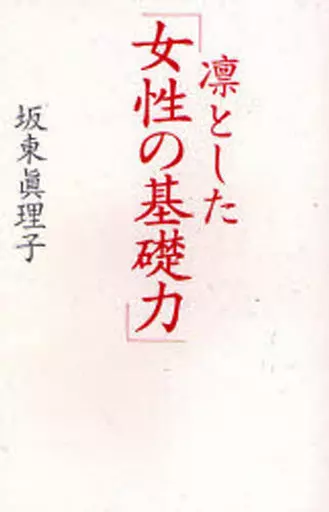 凛とした
「女性の基礎力」
坂東眞理子